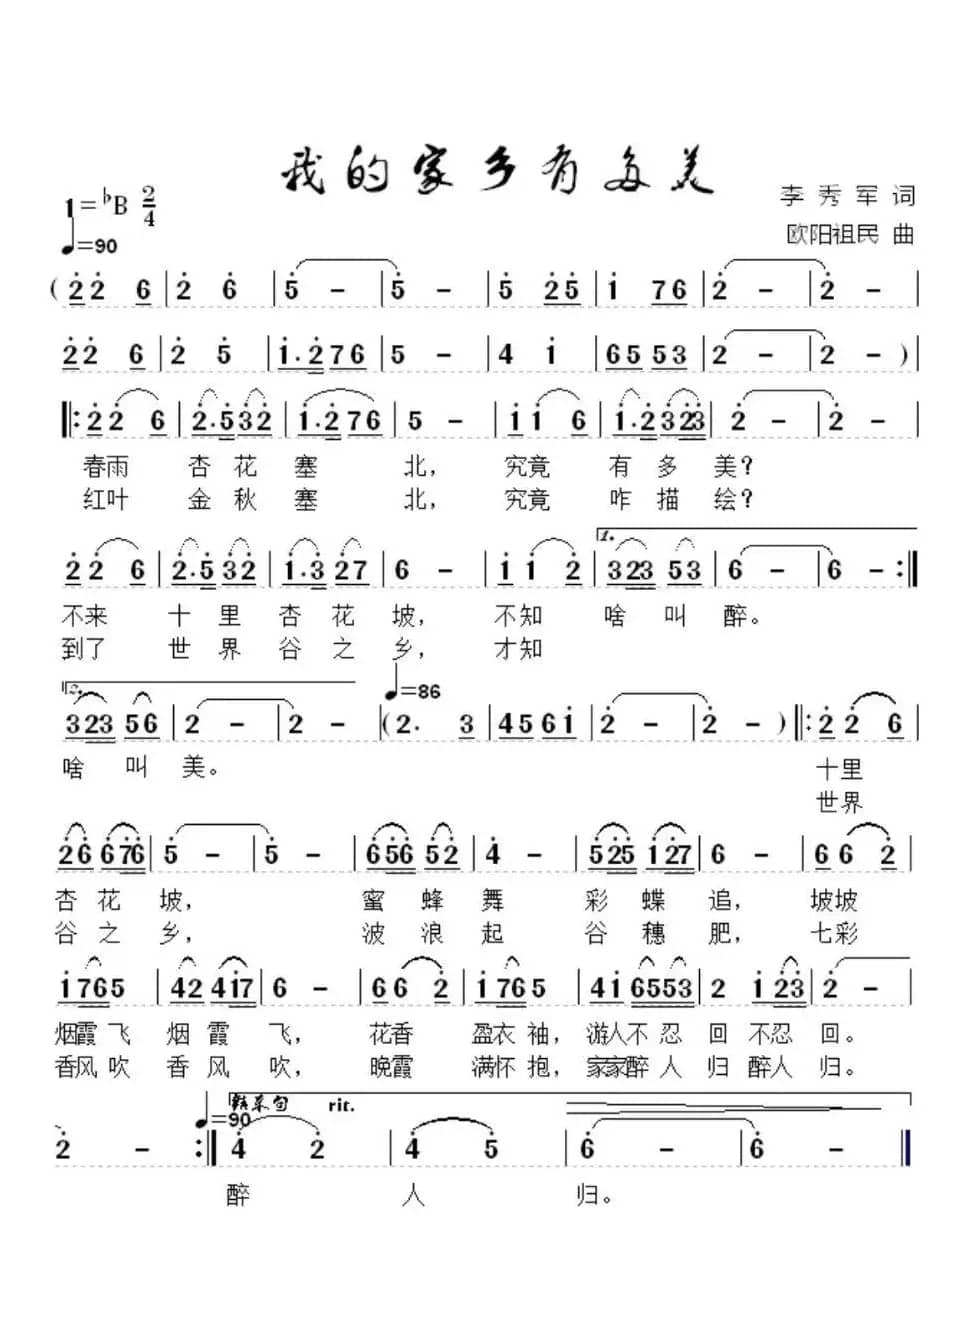 我的家乡有多美
1=♭B 2/4
李秀军 词
♩=90
欧阳祖民 曲
( 2 2 6 | 2 6 | 5 - | 5 - | 5 2 5 | 1 7 6 | 2 - | 2 - |
2 2 6 | 2 5 | 1. 2 7 6 | 5 - | 4 1 | 6 5 5 3 | 2 - | 2 - )
‖: 2 2 6 | 2. 5 3 2 | 1. 2 7 6 | 5 - | 1 1 6 | 1. 2 3 2 3 | 2 - | 2 - |
春雨 杏花塞 北, 究竟 有多美?
红叶 金秋塞 北, 究竟 咋描绘?
1.
2 2 6 | 2. 5 3 2 | 1. 3 2 7 | 6 - | 1 1 2 | 3 2 3 5 3 | 6 - | 6 - :‖
不来 十里杏花坡, 不知 啥叫醉。
到了 世界谷之乡, 才知
2. ♩=86
3 2 3 5 6 | 2 - | 2 - | ( 2. 3 | 4 5 6 1 | 2 - | 2 - ) ‖: 2 2 6 |
啥叫美。 十里
世界
2 6 6 7 6 | 5 - | 5 - | 6 5 6 5 2 | 4 - | 5 2 5 1 2 7 | 6 - | 6 6 2 |
杏花坡, 蜜蜂舞 彩蝶追, 坡坡
谷之乡, 波浪起 谷穗肥, 七彩
1 7 6 5 | 4 2 4 1 7 | 6 - | 6 6 2 | 1 7 6 5 | 4 1 6 5 5 3 | 2 1 2 3 | 2 - |
烟霞飞 烟霞飞, 花香 盈衣袖, 游人不忍回 不忍回。
香风吹 香风吹, 晚霞 满怀抱, 家家醉人归 醉人归。
♩=90 结束句 rit.
2 - :‖ 4 2 | 4 5 | 6 - | 6 - ‖
醉 人 归。